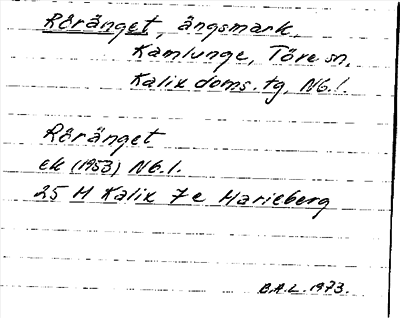 Röränget, ängsmark,
Kamlunge, Töre sn,
Kalix doms. tg, Nb. l.
Röränget
ek (1953) Nb. l.
25 M Kalix 7e Marieberg
B.A.L. 1973.